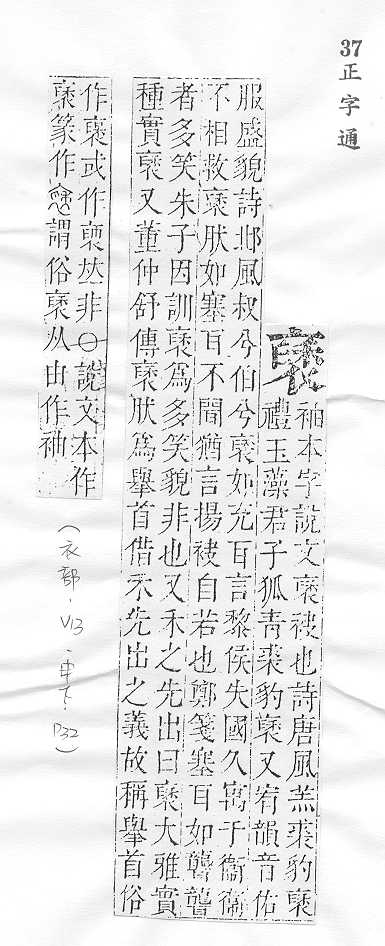 37正字通
褎
袖本字說文褎袂也詩唐風羔裘豹褎
禮玉藻君子狐靑裘豹褎又宥韻音佑
服盛貌詩邶風叔兮伯兮褎如充耳言黎侯失國久寓于衞衞
不相救褎肰如塞耳不聞猶言揚袂自若也鄭箋塞耳如聾聾
者多笑朱子因訓褎爲多笑貌非也又禾之先出曰褎大雅實
種實褎又董仲舒傳褎肰爲舉首借禾先出之義故稱舉首俗
作褏或作𧚔𠀤非○說文本作
褎篆作 謂俗褎从由作袖
(衣部.V13.申下.P32)